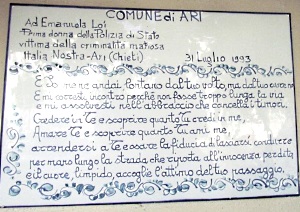 COMUNE di ARI
Ad Emanuela Loi
Prima donna della Polizia di Stato
vittima della criminalità mafiosa
Italia Nostra-Ari (Chieti) 31 Luglio 1993
E io me ne andai lontano dal tuo volto, ma dal tuo cuore no
e mi arresti incontro perché non fosse troppo lunga la via
e mi assistesti nell'abbraccio che cancella i timori.
Credere in Te è scoprire quanto tu credi in me,
Amare Te è scoprire quanto tu ami me,
arrendersi a Te è ssare la fiducia di lasciarsi condurre
per mano lungo la strada che riporta all'innocenza perduta
e il cuore, limpido, accoglie l'attimo del tuo passaggio,